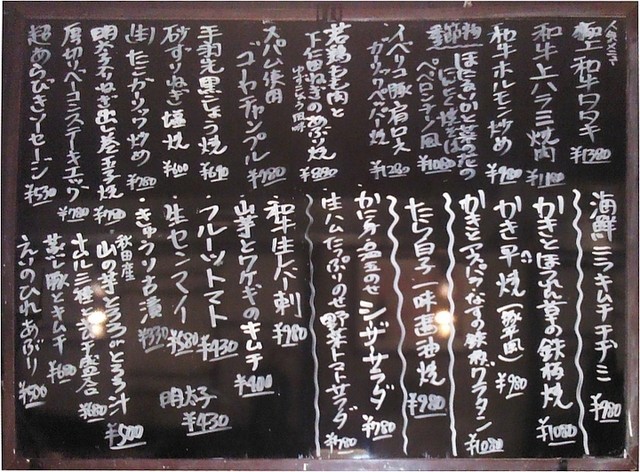 人気メニュー
極上和牛タタキ ¥1380
和牛上ハラミ焼肉 ¥1180
和牛ホルモン炒め ¥980
季節物
ペペロンチーノ風 ¥1080
イベリコ豚肩ロース
ガーリックペッパー焼 ¥1280
若鶏もも肉と
下仁田ねぎのあぶり焼 ¥880
ゆずこしょう風味
スパム使用
ゴーヤチャンプル ¥780
手羽先黒こしょう焼 ¥690
砂ずりねぎ塩焼 ¥600
生たこガーリック炒め ¥780
明太子ねぎ出し巻玉子焼 ¥780
厚切りベーコンステーキエッグ ¥780
超あらびきソーセージ ¥530
海鮮ニラキムチチヂミ ¥980
かきとほうれん草の鉄板焼 ¥1080
かき平焼(お好み風) ¥980
かきとアスパラ・なすの鉄板グラタン ¥1080
たら白子一味醤油焼 ¥980
かに身温玉のせシーザーサラダ ¥780
生ハムたっぷりのせ野菜トマトサラダ ¥780
和牛生レバー刺 ¥980
山芋とワケギのキムチ ¥400
・フルーツトマト ¥430
・生センマイ ¥580
・きゅうり古漬 ¥330
明太子 ¥430
秋田産
山の芋とろろがとろろ汁 ¥500
ナムル三種とキムチ盛合 ¥680
蒸し豚とキムチ ¥680
えいのひれあぶり ¥500